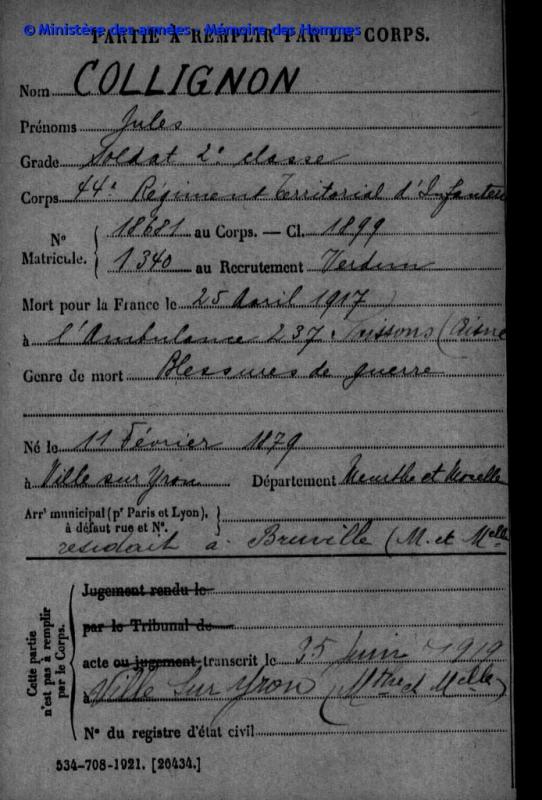 © Ministère des armées - Mémoire des Hommes
PARTIE À REMPLIR PAR LE CORPS.
Nom COLLIGNON
Prénoms Jules
Grade Soldat 2e classe
Corps 44e Régiment Territorial d'Infanterie
N° Matricule. { 18681 au Corps. — Cl. 1899
1340 au Recrutement Verdun
Mort pour la France le 25 Avril 1917
à l'Ambulance 237 Soissons (Aisne
Genre de mort Blessures de guerre
Né le 11 Février 1879
à Ville sur Yron Département Meurthe et Moselle
Arrt municipal (pr Paris et Lyon), }
à défaut rue et N°.
résidait à Bruville (M. et Melle
Cette partie n'est pas à remplir par le Corps.
Jugement rendu le
par le Tribunal de
acte ou jugement transcrit le Juin 1919
à Ville sur Yron (Mthe et Melle)
N° du registre d'état civil
534-708-1921. [26434.]